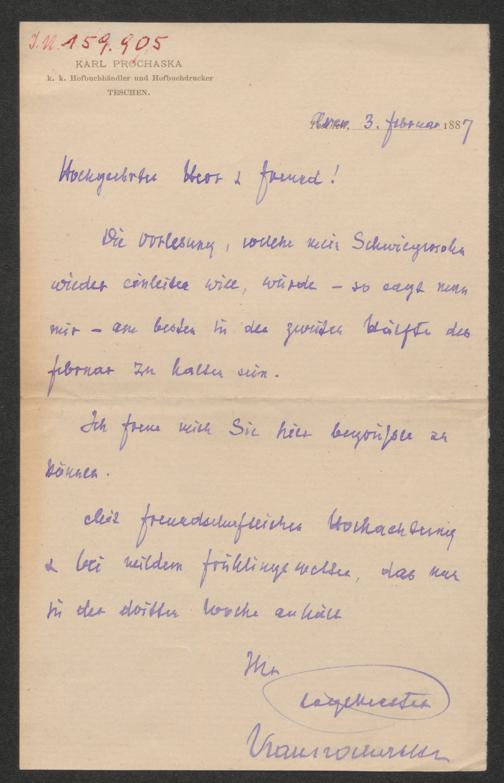 J.N. 159.905
KARL PROCHASKA
k. k. Hofbuchhändler und Hofbuchdrucker
TESCHEN.
3. Februar 1887
Hochgeehrter Herr & Freund!
Die Vorlesung, welche mein Schwiegersohn
wieder einleiten will, würde – so sagt man
mir – am besten in der zweiten Hälfte des
Februar zu halten sein.
Ich freue mich Sie hier begrüßen zu
können.
Mit freundschaftlicher Hochachtung
& bei mildem Frühlingswetter, das nun
in der dritten Woche anhält
Ihr
ergebenster